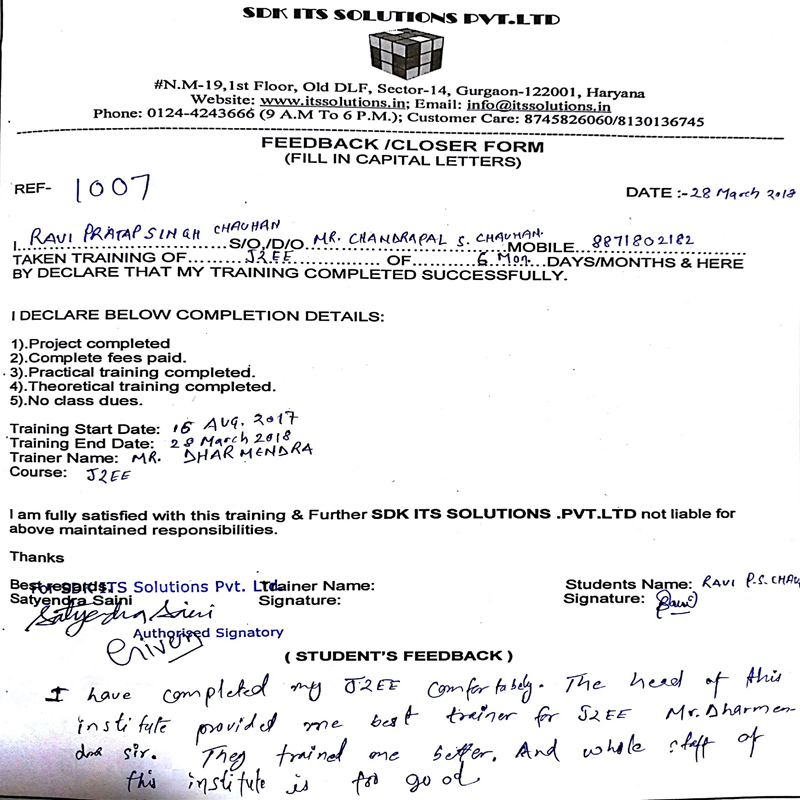 SDK ITS SOLUTIONS PVT.LTD
#N.M-19,1st Floor, Old DLF, Sector-14, Gurgaon-122001, Haryana
Website: www.itssolutions.in; Email: info@itssolutions.in
Phone: 0124-4243666 (9 A.M To 6 P.M.); Customer Care: 8745826060/8130136745
FEEDBACK /CLOSER FORM
(FILL IN CAPITAL LETTERS)
REF- 1007
DATE :- 28 March 2018
I RAVI PRATAP SINGH CHAUHAN S/O,/D/O MR. CHANDRAPAL S. CHAUHAN. MOBILE 8871802182
TAKEN TRAINING OF J2EE OF 6 Mon. DAYS/MONTHS & HERE
BY DECLARE THAT MY TRAINING COMPLETED SUCCESSFULLY.
I DECLARE BELOW COMPLETION DETAILS:
1).Project completed
2).Complete fees paid.
3).Practical training completed.
4).Theoretical training completed.
5).No class dues.
Training Start Date: 16 AUG. 2017
Training End Date: 28 March 2018
Trainer Name: MR. DHARMENDRA
Course: J2EE
I am fully satisfied with this training & Further SDK ITS SOLUTIONS .PVT.LTD not liable for
above maintained responsibilities.
Thanks
Best regards, For SDK ITS Solutions Pvt. Ltd. Trainer Name: Students Name: RAVI P.S. CHAU
Satyendra Saini Signature: Signature: Ravi
Satyendra Saini
Authorised Signatory
( STUDENT'S FEEDBACK )
I have completed my J2EE comfortabely. The head of this
institute provided me best trainer for J2EE Mr. Dharmen-
dra sir. They trained me better. And whole staff of
this institute is too good